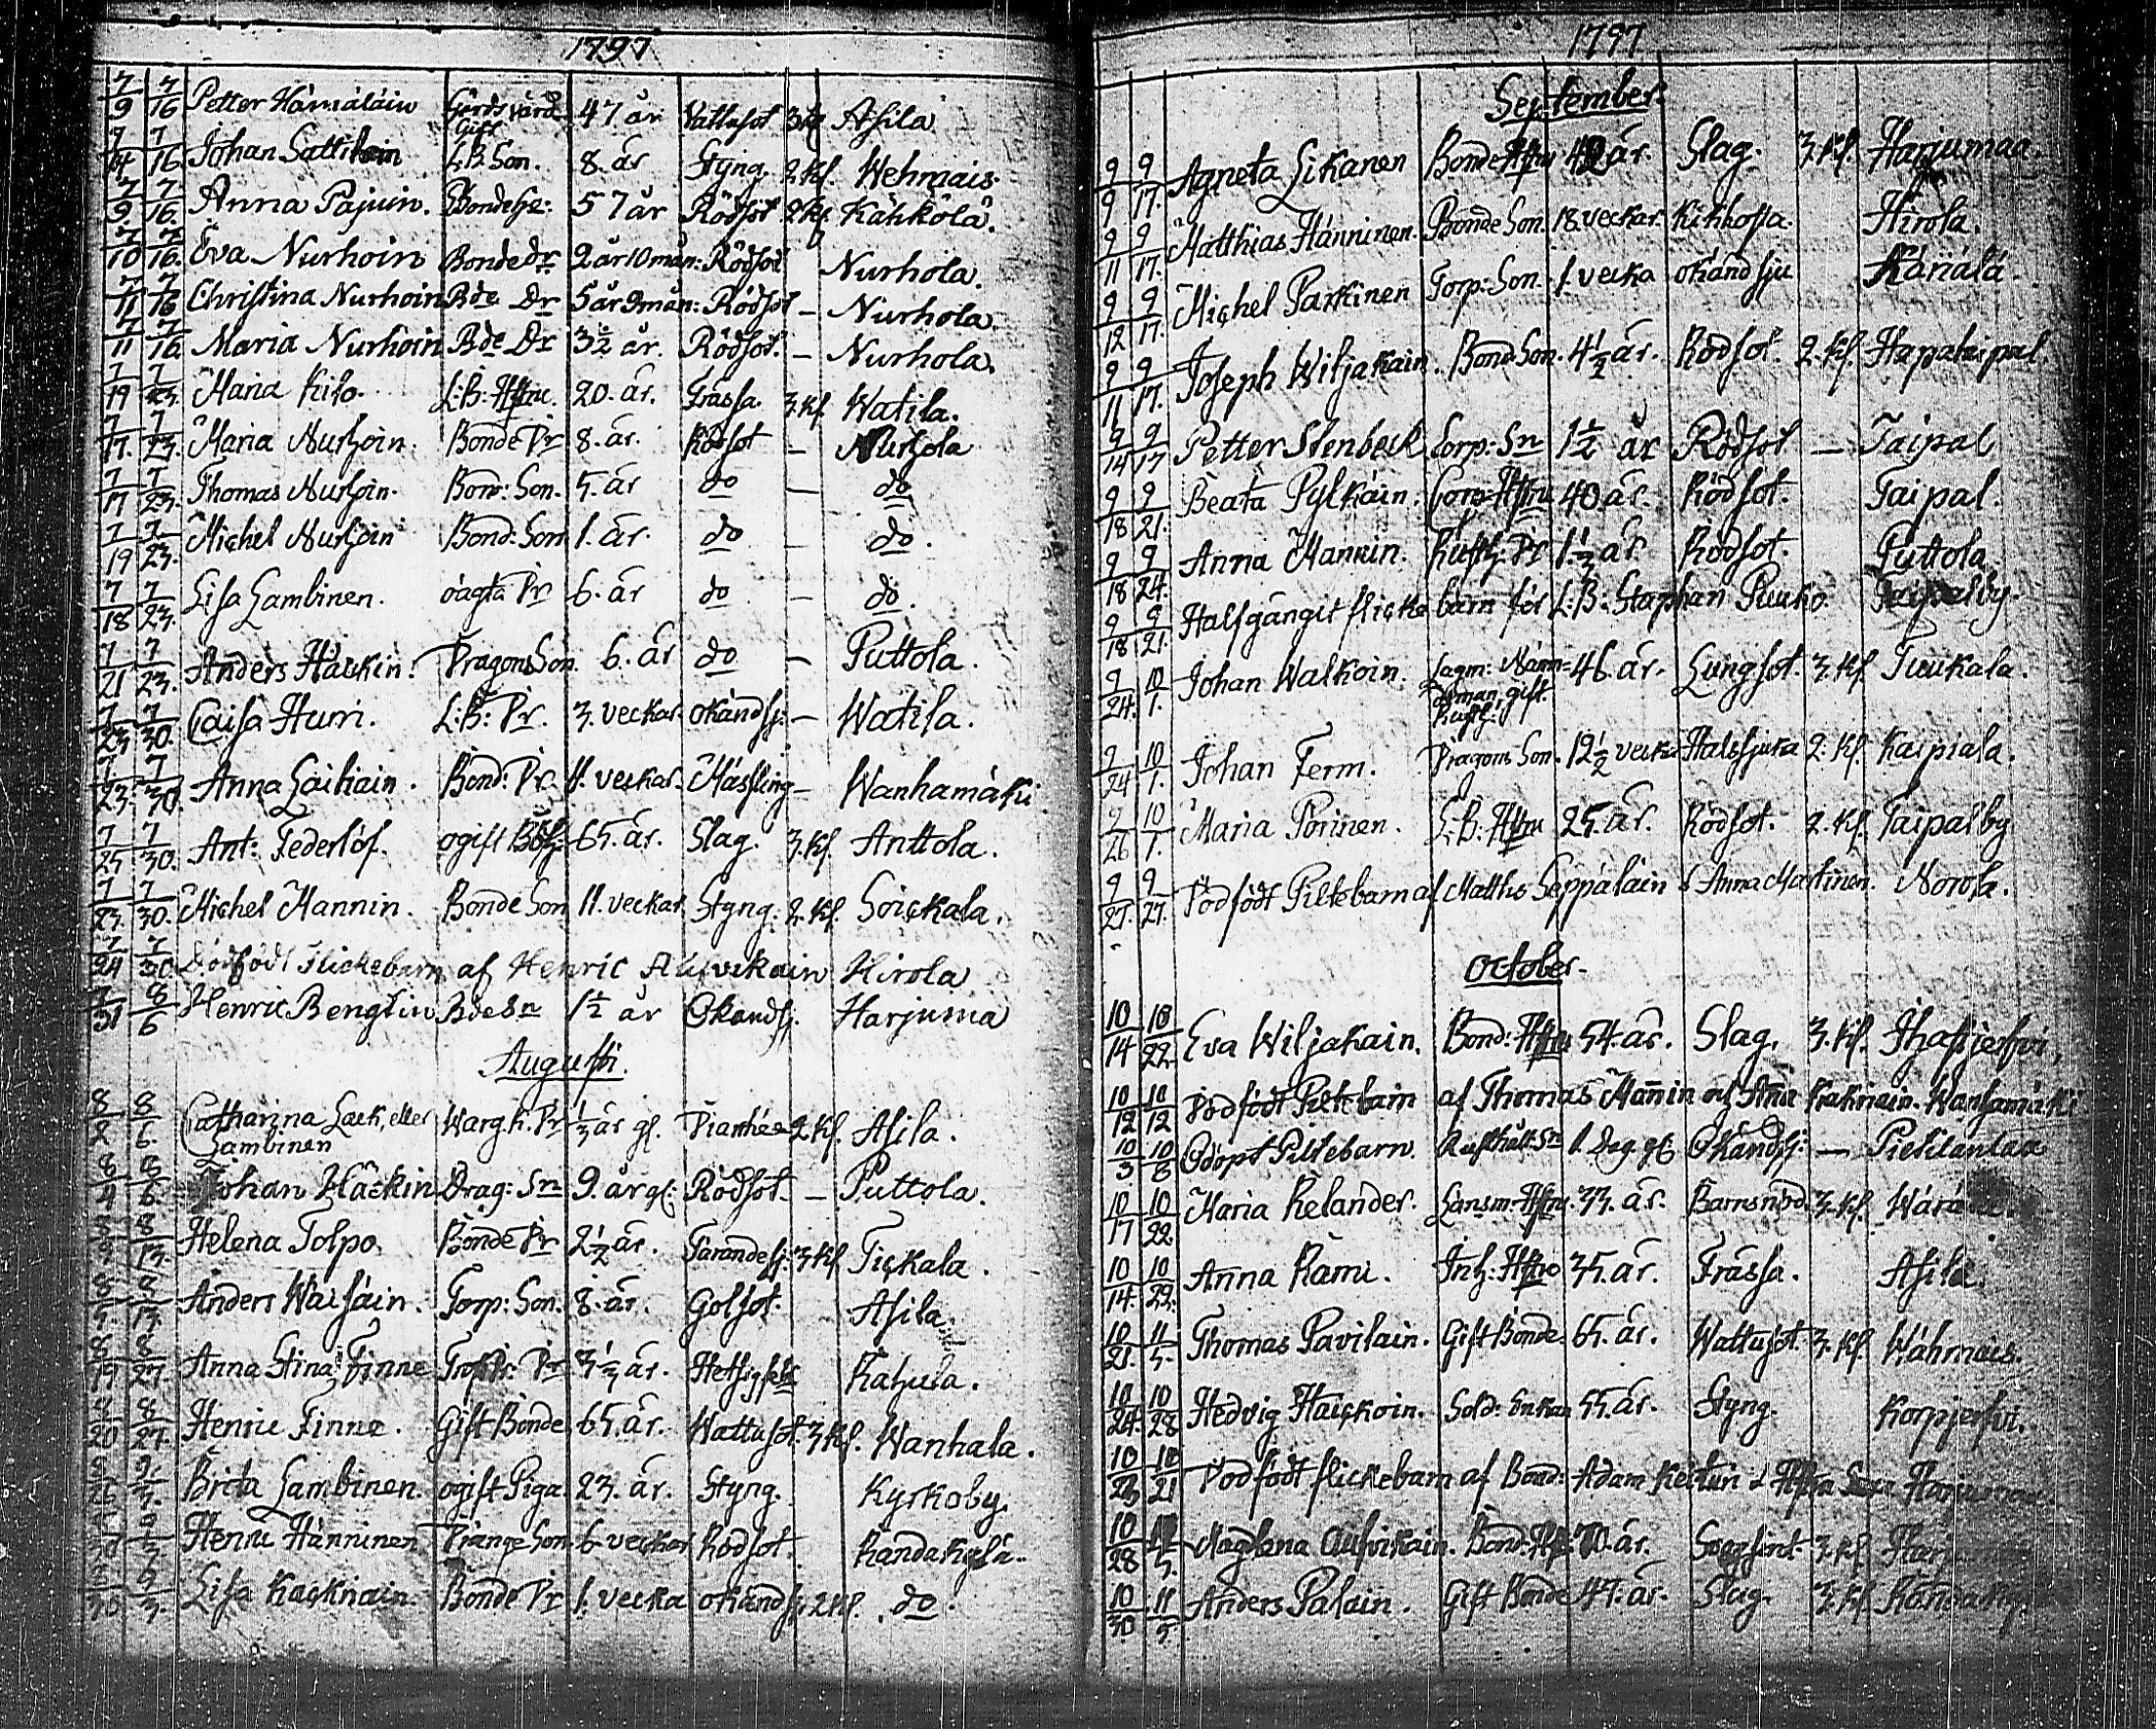 1797
7/9 7/16 Petter Hämäläin Gårdsvärd Gift 47 år Vattusot 3 kl Asila
7/14 7/16 Johan Sattikain L:B. Son. 8. år Styng. 2. kl. Wehmais.
7/9. 7/16. Anna Pajuin. Bonde 57 år Rödsot 2 kl. Kähkölä.
7/10 7/16. Eva Nurhoin Bonde dr 2 år 10 mån: Rödsot Nurhola.
7/11 7/16 Christina Nurhoin Bde Dr 5 år 9 mån: Rödsot – Nurhola.
7/11 7/16. Maria Nurhoin Bde Dr 3½ år. Rödsot. – Nurhola.
7/19 7/23. Maria Kilo. L:B: Hstru. 20. år. Frässa. 3. kl. Watila.
7/17. 7/23. Maria Nurhoin. Bonde Dr 8. år. Rödsot – Nurhola
7/17 7/23. Thomas Nurhoin. Bond: Son. 5. år do – do
7/19 7/23. Michel Nurhoin Bond: Son 1. år. do – do.
7/18 7/23. Lisa Lambinen. oägta Dr 6. år do – do.
7/21 7/23. Anders Häckin. Dragons Son. 6. år do – Puttola.
7/23 7/30. Caisa Hurri. L:B: Dr. 3. veckar. okändsj: – Watila.
7/23. 7/30. Anna Laikain. Bond: Dr. 11. veckar. Mässling – Wanhamäki
7/25 7/30. Ant: Federlöf. ogift 65. år. Slag. 3. kl. Anttola.
7/23. 7/30. Michel Mannin. Bonde Son 11. veckar. Styng. 2. kl. Soickala.
7/24 7/30 Dödfödt Flickebarn af Henric Hirola
7/31 8/6 Henric Bengtin Bde Sn 1½ år Okändsj. Harjuma
Augusti.
8/2 8/6. Catharina Lack, eller Lambinen Warg.k. Dr ⅓ år gl. Diarrhée 2 kl. Asila.
8/4 8/6. Johan Häckin Drag: Sn 9. år gl: Rödsot. – Puttola.
8/13. Helena Tolpo. Bonde Dr 2½ år. Tärandesj: 3 kl Tickala.
Anders Waisäin. Torp: Son. 8. år. Golsot. Asila.
8/19 8/27 Anna Stina Finne Dr 3½ år. Hetsigfeb: Kahula.
8/20 8/27. Henric Finne. Gift Bonde 65. år. Wattusot. 3 kl. Wanhala.
9/3. Brita Lambinen. ogift Piga. 23. år. Styng. Kyrkoby.
9/3. Henric Hänninen Son 6. veckar Rödsot. Kandakylä.
8/30 9/3. Lisa Kacknain. Bonde Dr 1. vecka okändsj: 2 kl. do.
1797
September.
9/9 9/17. Agneta Likanen Bonde Hstru 42 år. Slag. 3. kl. Harjumaa.
9/11 9/17. Matthias Hänninen. Bonde Son. 18. veckar. Kikhosta. Hirola.
9/12 9/17. Michel Parkinen Torp: Son. 1. vecka okänd sju Käriälä.
9/11 9/17. Joseph Wiljakain. Bond: Son. 4½ år. Rödsot. 2. kl. Hapataipal.
9/14 9/17 Petter Stenbeck Corp: Sn 1½ år Rödsot – Taipal
9/18 9/21. Beata Pylkäin. Corp: Hstru 40 år. Rödsot. Taipal.
9/18 9/24. Anna Mannin. Rusth: Dr 1½ år Rödsot. Puttola
9/18 9/21. Halfgångit flickebarn för L:B: Staphan Puuko. Taipalby.
9/24. 10/1. Johan Walkoin. Lagm: Nämn= deman, gift Rusth: 46. år. Lungsot. 3. kl. Tuukala.
9/24 10/1. Johan Ferm. Dragons Son. 12½ veckar Halssjuka 2. kl. Kaipiala.
9/26 10/1. Maria Porinen. L:B: Hstru 25. år. Rödsot. 2. kl. Taipalby
9/27. 9/27. Dödfödt Piltebarn af Matths Seppäläin & Anna Martinen. Norola.
October.
10/14 10/22. Eva Wiljakain. Bond: Hstru 54. år. Slag. 3. kl. Ihastjerfvi,
10/12 10/12 Dödfödt Piltebarn af Thomas Mañin och Wanhamäki
10/3 10/8 Odöpt Piltebarn. Rusthåll: Sn 1. Dag. gl: Okändsj: – Pietilänlax
10/17 10/22 Maria Relander. Länsm: Hstru. 33. år. Barnsnöd 3. kl.
10/14. 10/22. Anna Rämi. Inh: Hstro 35. år. Frässa. Asila.
10/21. 11/5. Thomas Pavilain. Gift Bonde. 65. år. Wattusot. 3. kl. Wähmais.
10/24. 10/28 Hedvig Häickoin. Sold: Enkan 55. år. Styng. Korpjerfvi.
10/23 10/21 Dödfödt flickebarn af Bond: Adam &
10/28 Magdlena Aufvikain. Bond: 70. år. 3. kl.
10/30 11/5 Anders Palain. Gift Bonde 47. år. Slag. 3. kl.